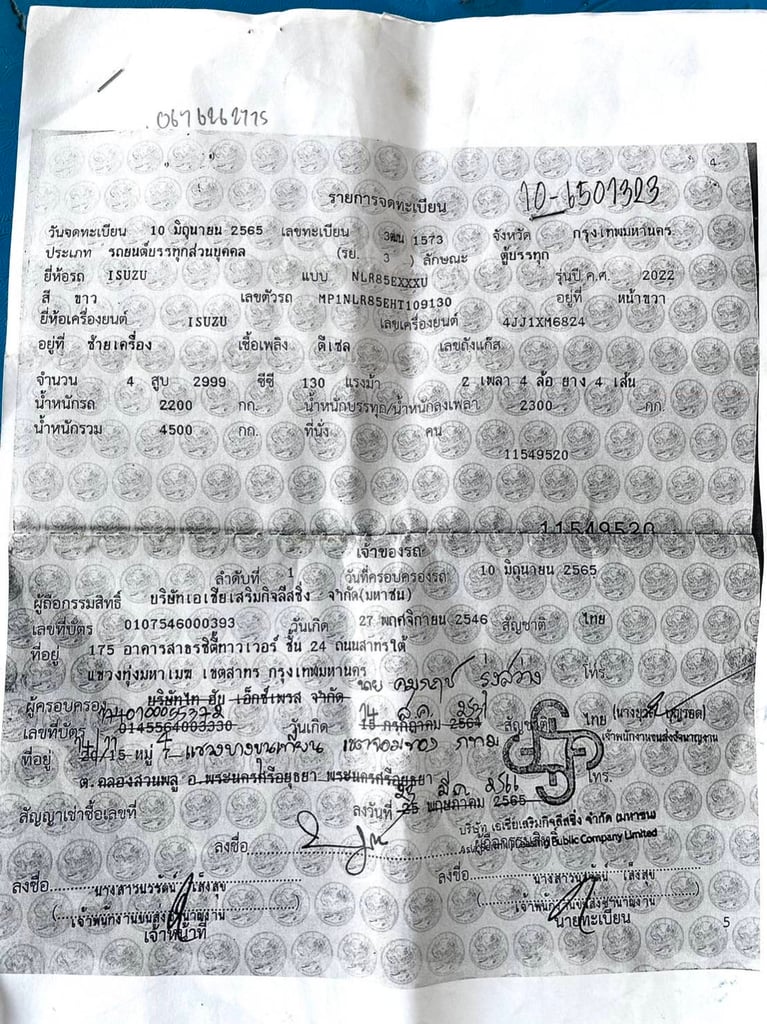 0676262775
4
รายการจดทะเบียน 10-6501323
วันจดทะเบียน 10 มิถุนายน 2565 เลขทะเบียน 3ฒน 1573 จังหวัด กรุงเทพมหานคร
ประเภท รถยนต์บรรทุกส่วนบุคคล (รย. 3 ) ลักษณะ ตู้บรรทุก
ยี่ห้อรถ ISUZU แบบ NLR85EXXXU รุ่นปี ค.ศ. 2022
สี ขาว เลขตัวรถ MP1NLR85EHT109130 อยู่ที่ หน้าขวา
ยี่ห้อเครื่องยนต์ ISUZU เลขเครื่องยนต์ 4JJ1XM6824
อยู่ที่ ซ้ายเครื่อง เชื้อเพลิง ดีเซล เลขถังแก๊ส
จำนวน 4 สูบ 2999 ซีซี 130 แรงม้า 2 เพลา 4 ล้อ ยาง 4 เส้น
น้ำหนักรถ 2200 กก. น้ำหนักบรรทุก/น้ำหนักลงเพลา 2300 กก.
น้ำหนักรวม 4500 กก. ที่นั่ง คน
11549520
11549520
เจ้าของรถ
ลำดับที่ 1 วันที่ครอบครองรถ 10 มิถุนายน 2565
ผู้ถือกรรมสิทธิ์ บริษัทเอเซียเสริมกิจลีสซิ่ง จำกัด(มหาชน)
เลขที่บัตร 0107546000393 วันเกิด 27 พฤศจิกายน 2546 สัญชาติ ไทย
ที่อยู่ 175 อาคารสาธรซิตี้ทาวเวอร์ ชั้น 24 ถนนสาทรใต้
แขวงทุ่งมหาเมฆ เขตสาทร กรุงเทพมหานคร โทร.
นาย
ผู้ครอบครอง บริษัทไท ฮัย เอ็กซ์เพรส จำกัด
เลขที่บัตร 0145564003330 วันเกิด 15 กรกฎาคม 2564 สัญชาติ ไทย
เจ้าพนักงานขนส่งชำนาญงาน
ที่อยู่ 20/15 หมู่ 4 แขวงบางขุนเทียน เขตจอมทอง กทม
ต.คลองสวนพลู อ.พระนครศรีอยุธยา พระนครศรีอยุธยา โทร.
สัญญาเช่าซื้อเลขที่ ลงวันที่ 25 พฤษภาคม 2565
บริษัท เอเซียเสริมกิจลีสซิ่ง จำกัด (มหาชน)
Public Company Limited
ลงชื่อ ผู้ถือกรรมสิทธิ์
ลงชื่อ นางสาวนวรัตน์ เส็งสุข ลงชื่อ นางสาวนวรัตน์ เส็งสุข
(เจ้าพนักงานขนส่งชำนาญงาน) (เจ้าพนักงานขนส่งชำนาญงาน)
เจ้าหน้าที่ นายทะเบียน
5